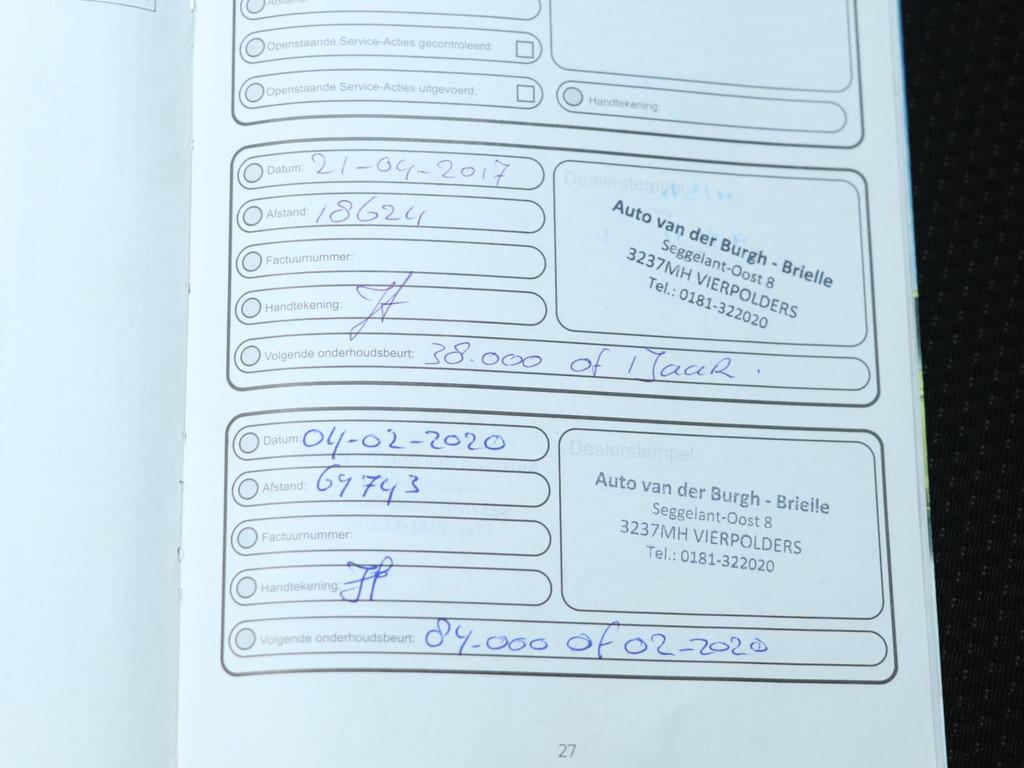 Afstand:
Openstaande Service-Acties gecontroleerd:
Openstaande Service-Acties uitgevoerd:
Handtekening:
Datum: 21-04-2017
Afstand: 18624
Factuurnummer:
Handtekening:
Volgende onderhoudsbeurt: 38.000 of 1 Jaar.
Dealerstempel
Auto van der Burgh - Brielle
Seggelant-Oost 8
3237MH VIERPOLDERS
Tel.: 0181-322020
Datum: 04-02-2020
Afstand: 69743
Factuurnummer:
Handtekening:
Volgende onderhoudsbeurt: 84.000 of 02-2020
Dealerstempel
Auto van der Burgh - Brielle
Seggelant-Oost 8
3237MH VIERPOLDERS
Tel.: 0181-322020
27